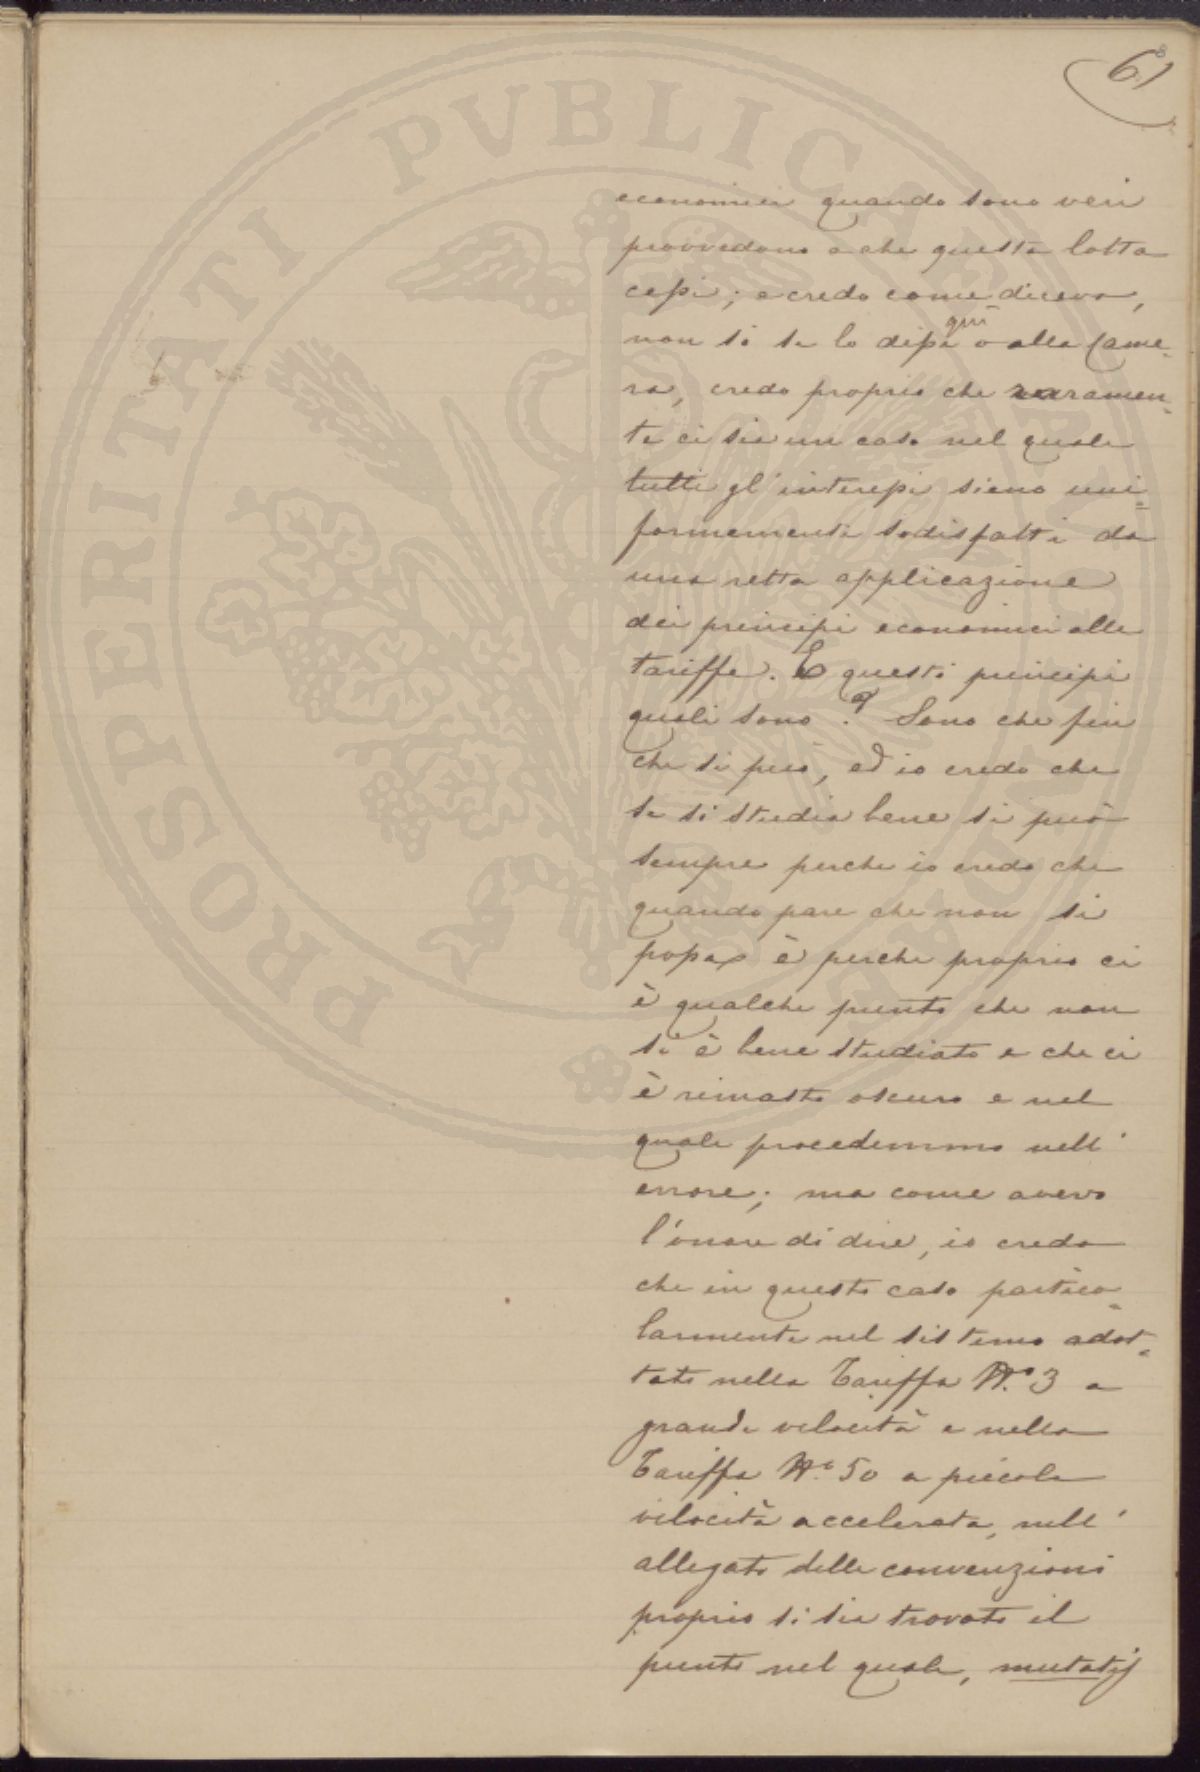 61
economici quando sono veri
provvedono a che questa lotta
cessi; e credo come diceva,
non so se lo dissi qui o alla Came-
ra, credo proprio che raramen-
te ci sia un caso nel quale
tutti gl'interessi sieno uni-
formemente sodisfatti da
una retta applicazione
dei principi economici alle
tariffe. E questi principi
quali sono? Sono che fin
che si può, ed io credo che
se si studia bene si può
sempre perche io credo che
quando pare che non si
possa è perche proprio ci
è qualche punto che non
si è bene studiato e che ci
è rimasto oscuro e nel
quale procedemmo nell'
errore; ma come avevo
l'onore di dire, io credo
che in questo caso partico-
larmente nel sistema adot-
tato nella Tariffa N.º 3 a
grande velocità e nella
Tariffa N.º 50 a piccola
velocità accelerata, nell'
allegato delle convenzioni
proprio si sia trovato il
punto nel quale, mutatis
PROSPERITATI PVBLICAE